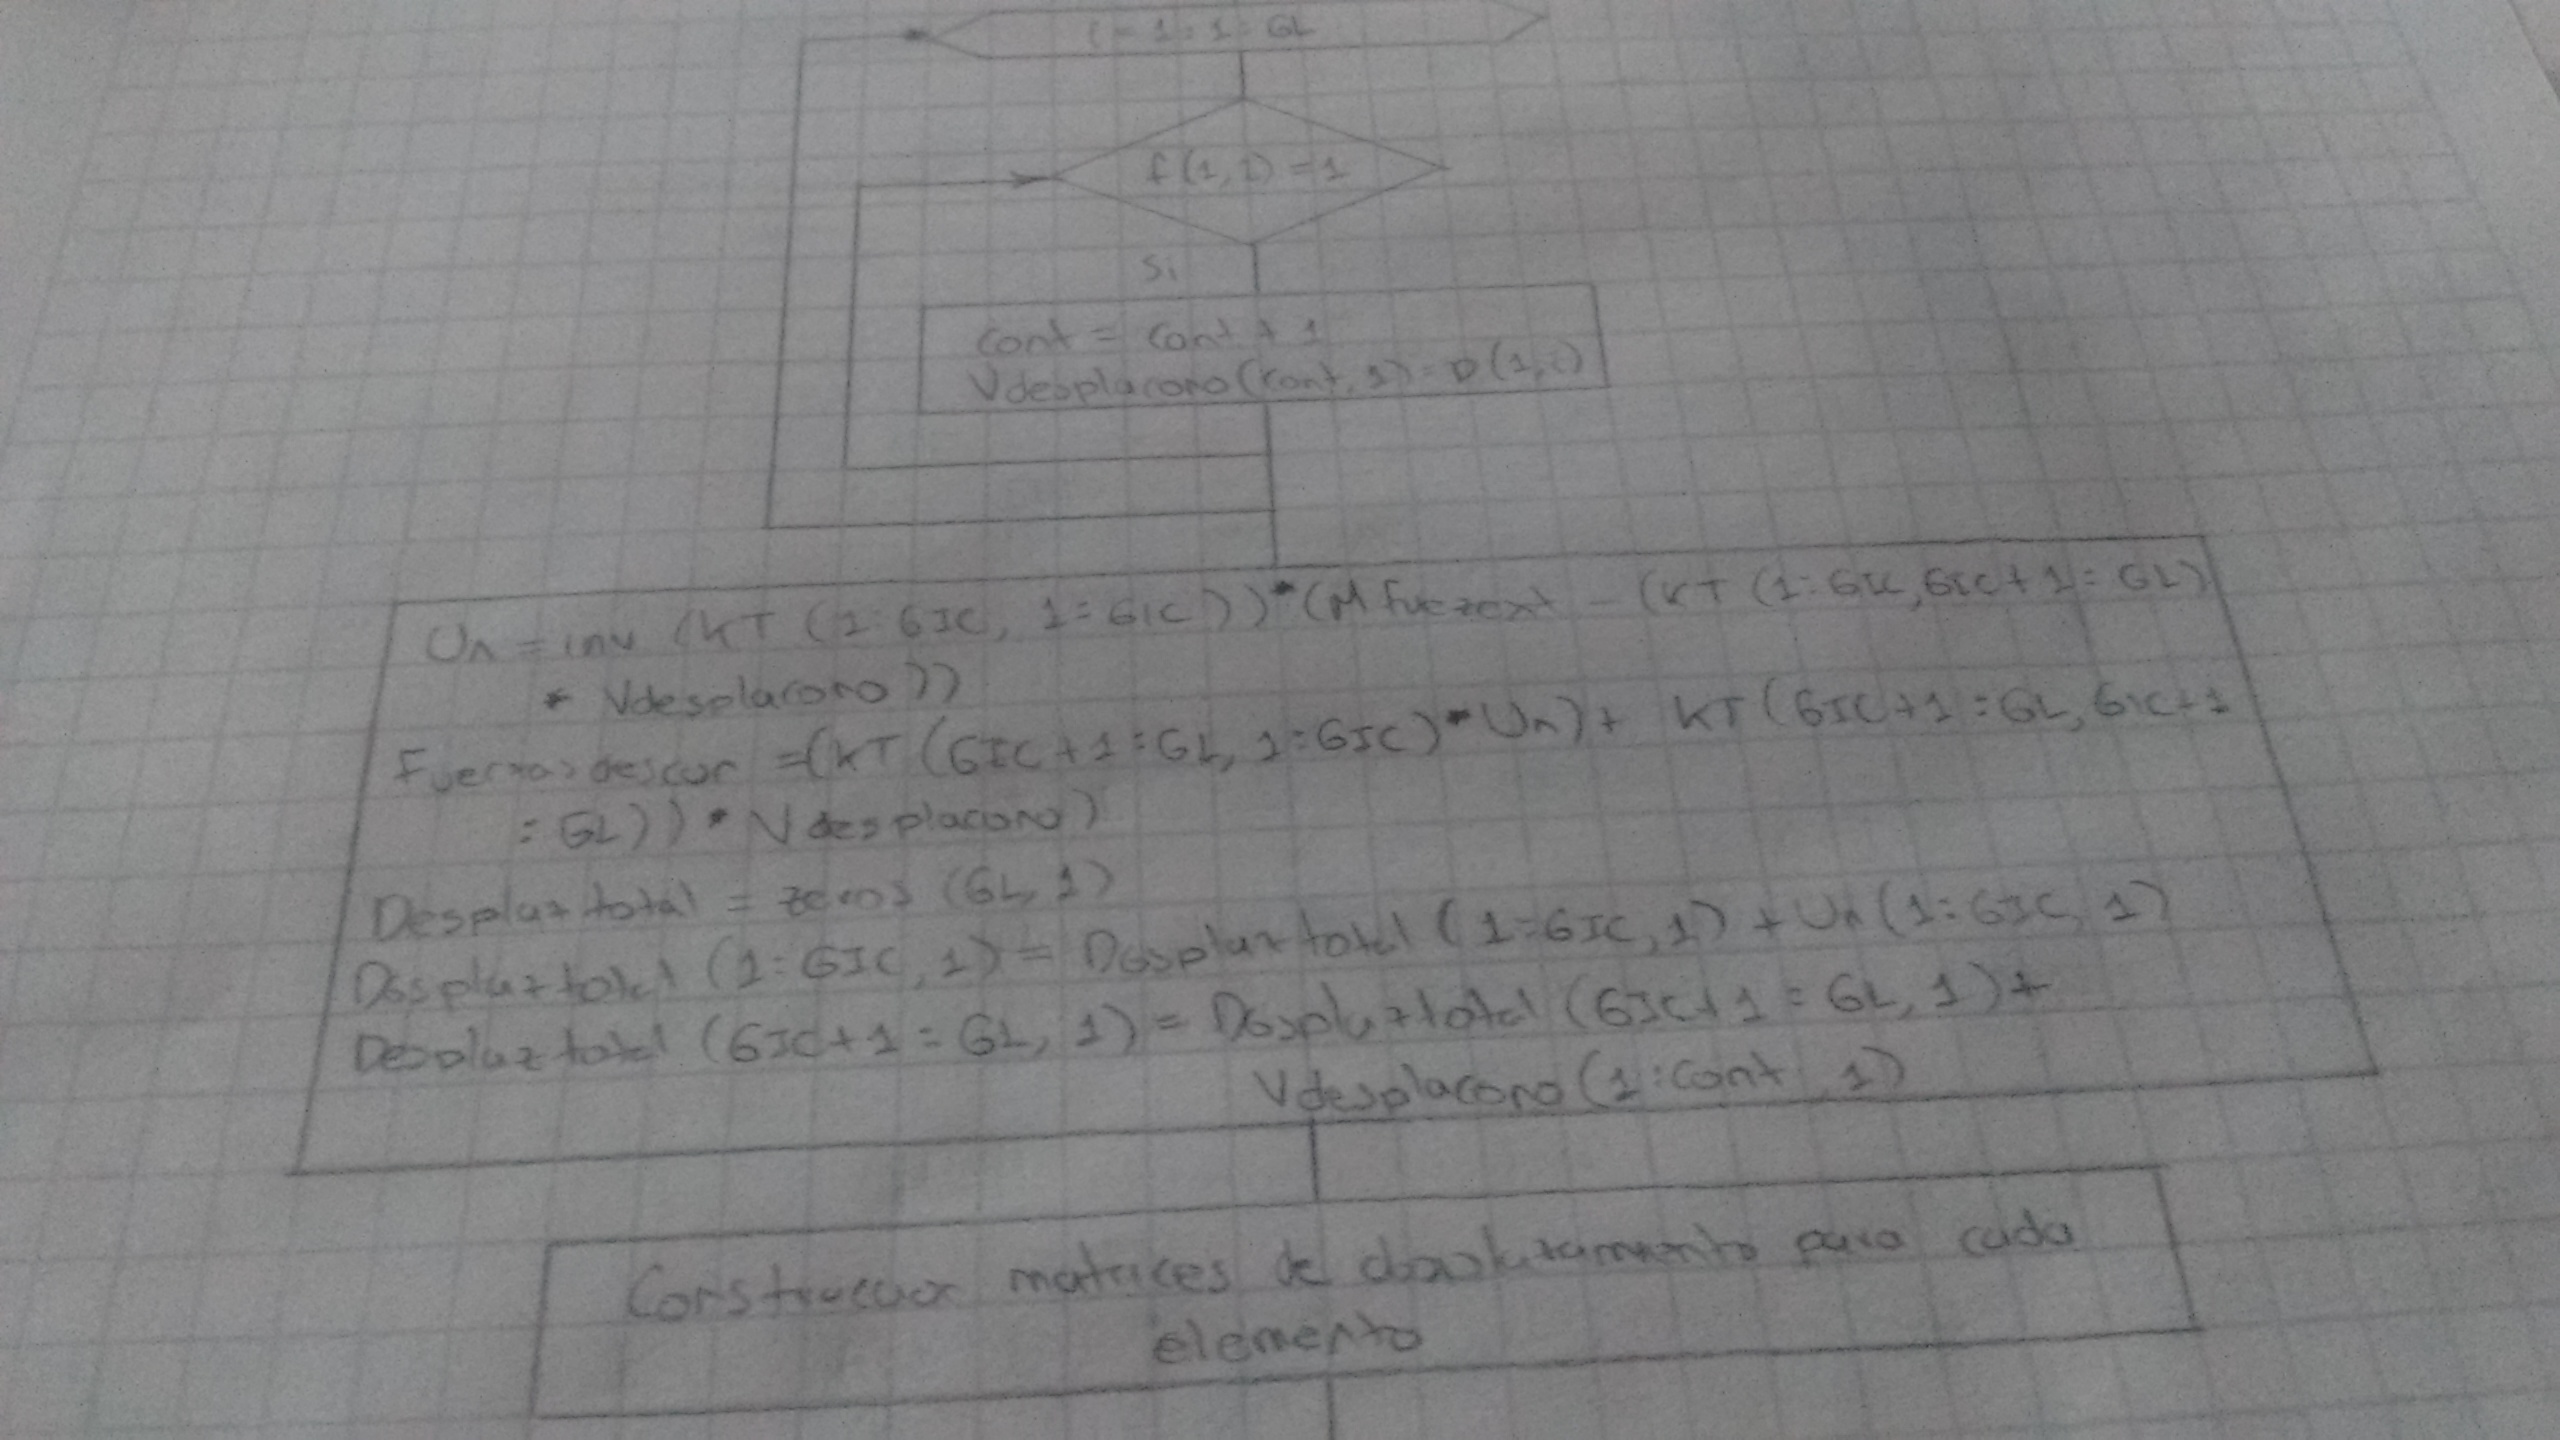 i = 1 : 1 : GL
f(1,i) = 1
Si
cont = cont + 1
Vdesplacono(cont,1) = D(1,i)
Un = inv (KT (1:GIC, 1:GIC))*(MFuerext - (KT (1:GIC,GIC+1:GL)
* Vdesplacono))
Fuerzasdescon =(KT(GIC+1:GL, 1:GIC)*Un)+ KT(GIC+1:GL,GIC+1
:GL))*Vdesplacono)
Desplaztotal = zeros (GL,1)
Desplaztotal (1:GIC,1) = Desplaztotal (1:GIC,1) + Un(1:GIC,1)
Desplaztotal (GIC+1:GL, 1) = Desplaztotal (GIC+1:GL,1)+
Vdesplacono(1:cont,1)
matrices de desplazamiento para cada
elemento